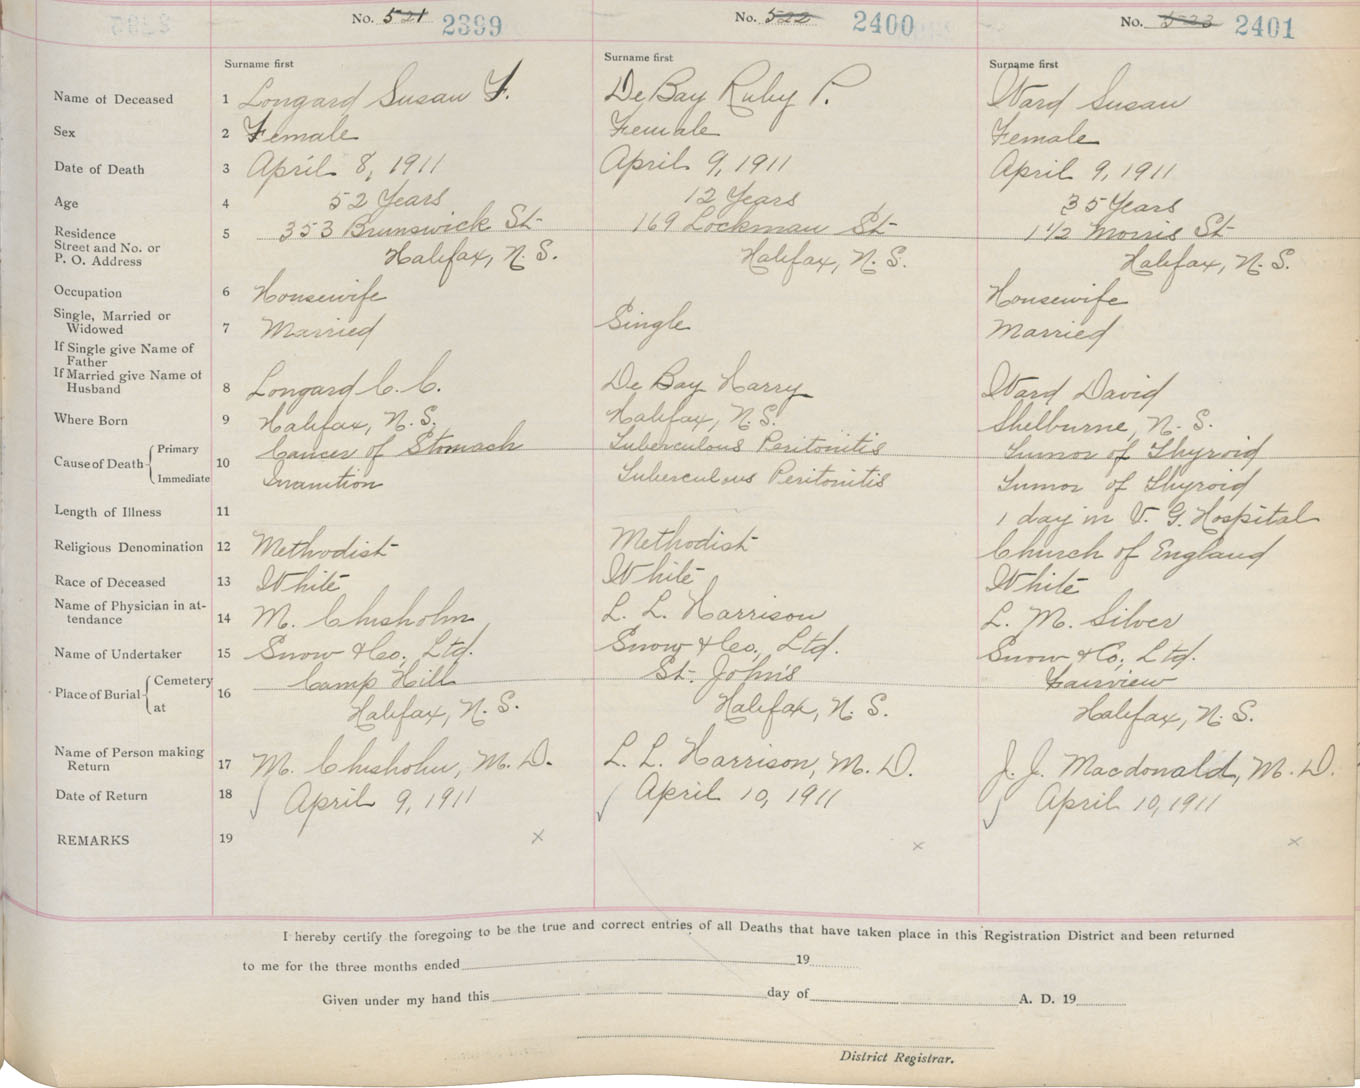 No. 521 2399 No. 522 2400 No. 523 2401
Surname first Surname first Surname first
Name of Deceased 1 Longard Susan F. De Bay Ruby P. Ward Susan
Sex 2 Female Female Female
Date of Death 3 April 8, 1911 April 9, 1911 April 9, 1911
Age 4 52 Years 12 Years 35 Years
Residence 5 353 Brunswick St 169 Lockman St 1 1/2 Morris St
Street and No. or
P. O. Address Halifax, N. S. Halifax, N. S. Halifax, N. S.
Occupation 6 Housewife Housewife
Single, Married or
Widowed 7 Married Single Married
If Single give Name of
Father
If Married give Name of
Husband 8 Longard C. C. De Bay Harry Ward David
Where Born 9 Halifax, N. S. Halifax, N. S. Shelburne, N. S.
Cause of Death Primary 10 Cancer of Stomach Tuberculous Peritonitis Tumor of Thyroid
Immediate Inanition Tuberculous Peritonitis Tumor of Thyroid
Length of Illness 11 1 day in V. G. Hospital
Religious Denomination 12 Methodist Methodist Church of England
Race of Deceased 13 White White White
Name of Physician in at-
tendance 14 M. Chisholm L. L. Harrison L. M. Silver
Name of Undertaker 15 Snow & Co., Ltd. Snow & Co., Ltd. Snow & Co., Ltd.
Place of Burial Cemetery 16 Camp Hill St. John's Fairview
at Halifax, N. S. Halifax, N. S. Halifax, N. S.
Name of Person making
Return 17 M. Chisholm, M. D. L. L. Harrison, M. D. J. J. Macdonald, M. D.
Date of Return 18 April 9, 1911 April 10, 1911 April 10, 1911
REMARKS 19 x x x
I hereby certify the foregoing to be the true and correct entries of all Deaths that have taken place in this Registration District and been returned
to me for the three months ended 19
Given under my hand this day of A. D. 19
District Registrar.